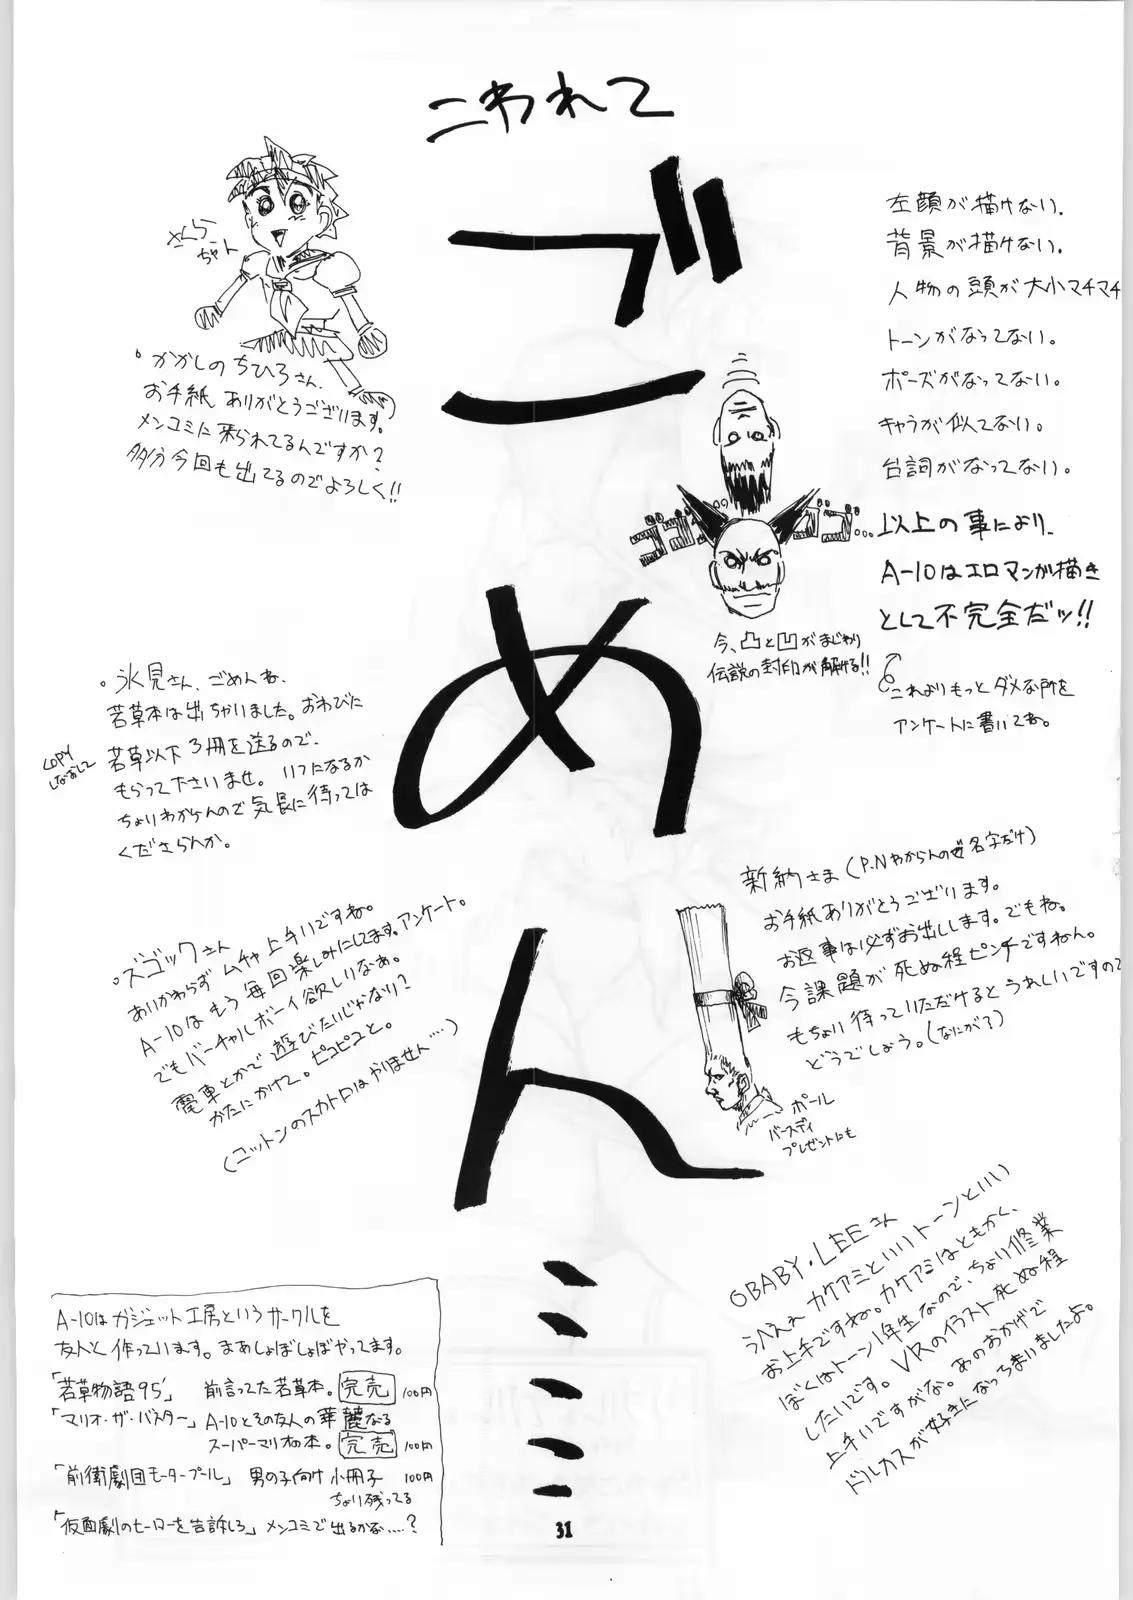 こわれて
ごめん……
さくら
ちゃん
。かかしのちひろさん、
お手紙ありがとうございます。
メンコミに来られてるんですか？
多分今回も出てるのでよろしく!!
左顔が描けない.
背景が描けない.
人物の頭が大小マチマチ
トーンがなってない。
ポーズがなってない。
キャラが似てない。
台詞がなってない。
以上の事により、
A-10はエロマンガ描き
として不完全だッ!!
これよりもっとダメな所を
アンケートに書いてね。
ゴゴゴゴ…
今、凸と凹がまじわり
伝説の封印が解ける!!
。氷見さん、ごめんね、
若草本は出ちがいました。おわびに
若草以下3冊を送るので、
COPY
しなおして
もらって下さいませ。いつになるか
ちょいわかんので気長に待っては
くださらんか。
。ズゴックさん
あいかわらずムチャ上手いですね。
A-10はもう毎回楽しみにしてます。アンケート。
でもバーチャルボーイ欲しいなぁ。
電車とかで遊びたいじゃない？
かたにかけて。ピコピコと。
(コットンのスカトロはやりません……)
新納さま(P.Nわからんので名字だけ)
お手紙ありがとうございます。
お返事は必ずお出しします。でもね。
今課題が死ぬ程ピンチですねん。
もちょい待っていただけるとうれしいですの
どうでしょう。(なにが？)
ポール
バースディ
プレゼントにも
OBABY・LEEさん
うへえぇカケアミといいトーンといい
お上手ですね。カケアミはともかく、
ぼくはトーン1年生なので、ちょい修業
したいです。VRのイラスト死ぬ程
上手いですがな。あのおかげで
ドルカスが好きになっちまいましたよ。
A-10はガジェット工房というサークルを
友人と作っています。まあしょぼしょぼやってます。
「若草物語95'」 前言ってた若草本。 完売 100円
「マリオ・ザ・バスター」 A-10とその友人の華麗なる
スーパーマリオの本。 完売 100円
「前衛劇団モータープール」 男の子向け小冊子 100円
ちょい残ってる
「仮面劇のヒーローを告訴しろ」メンコミで出るかな……？
31